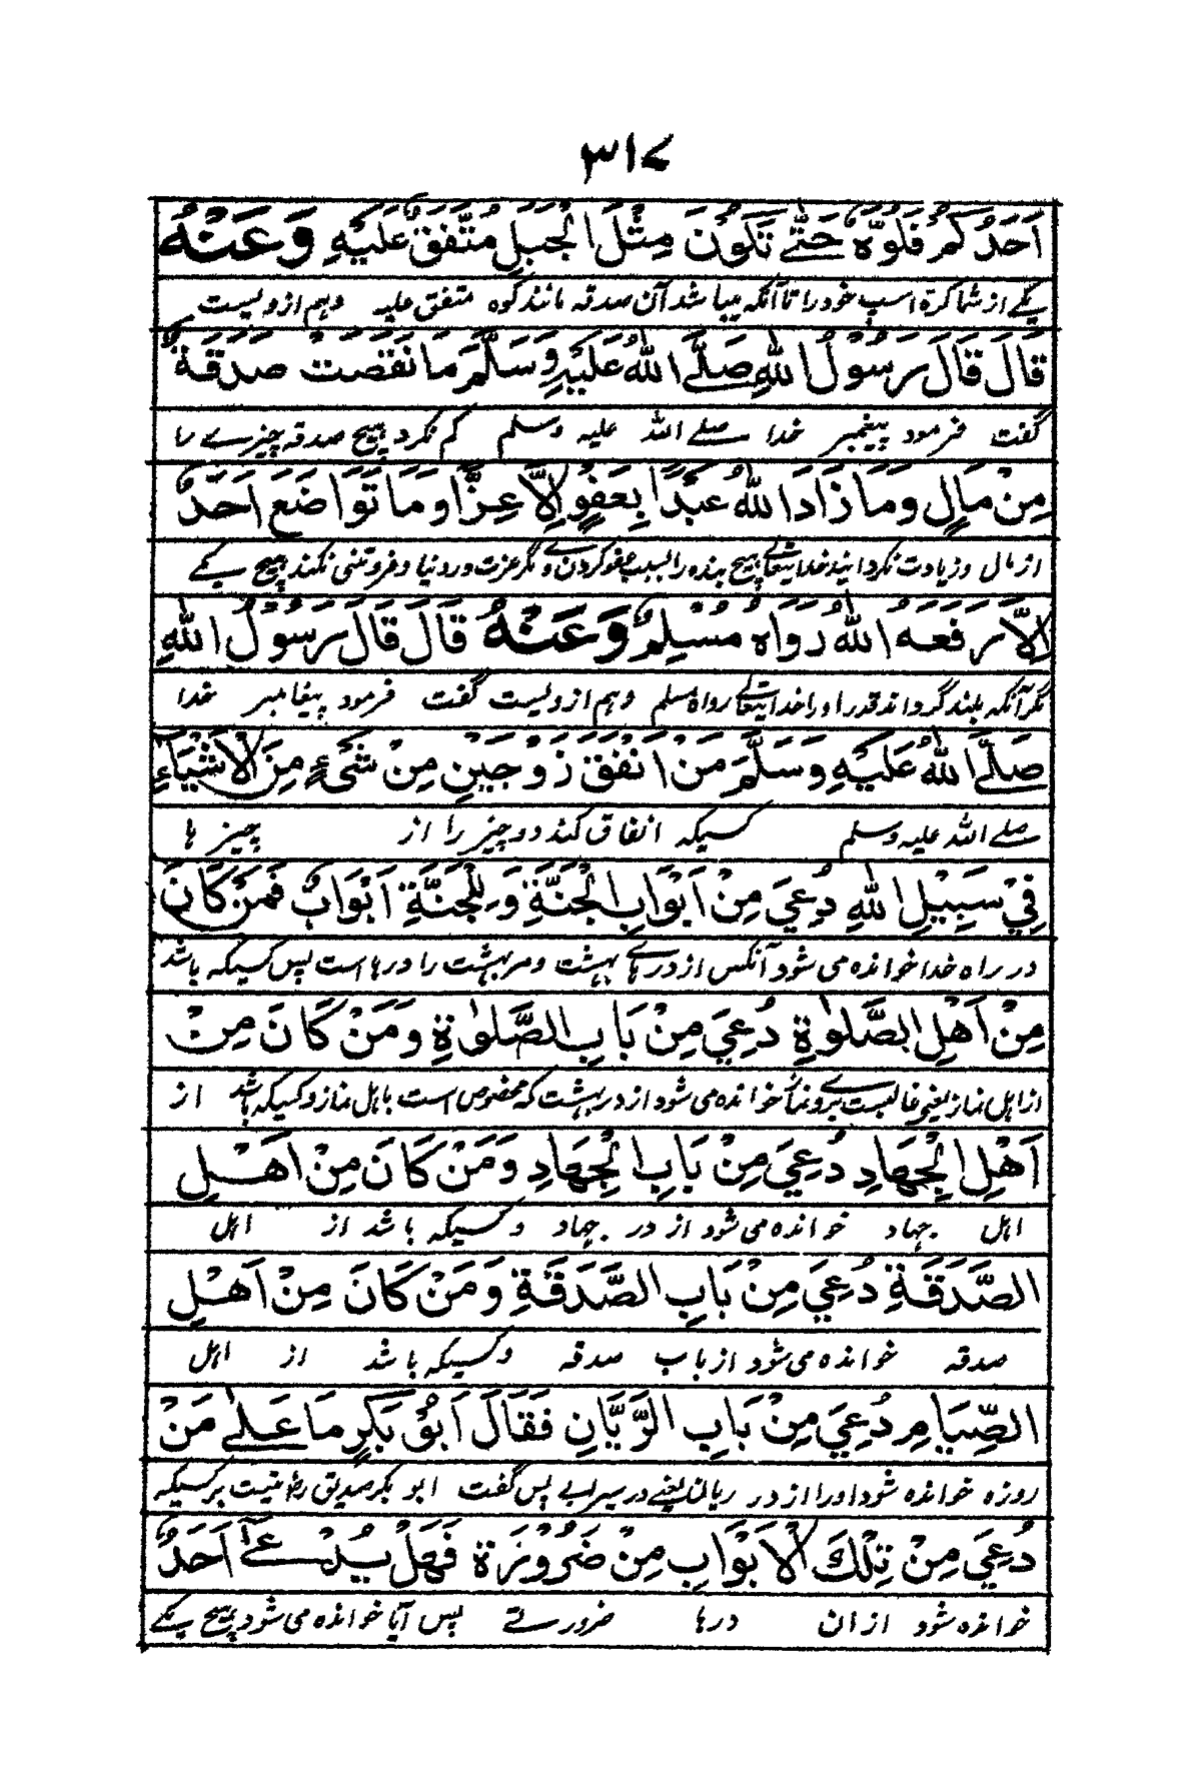 ۳۱۷
اَحَدُكُمْ فَلُوَّهٗ حَتّٰے تَكُوْنَ مِثْلَ الْجَبَلِ مُتَّفَقٌ عَلَيْهِ وَعَنْهُ
یکے از شما کرۂ اسپ خود را تا آنکہ میباشد آن صدقہ مانند کوہ متفق علیہ وہم ازویست
قَالَ قَالَ رَسُوْلُ اللّٰهِ صَلَّے اللّٰهُ عَلَيْهِ وَسَلَّمَ مَا نَقَصَتْ صَدَقَةٌ
گفت فرمود پیغمبر خدا صلے اللہ علیہ وسلم کم نکرد ہیچ صدقہ چیزے را
مِنْ مَالٍ وَمَا زَادَ اللّٰهُ عَبْدًا بِعَفْوٍ اِلَّا عِزًّا وَمَا تَوَاضَعَ اَحَدٌ
از مال وزیادت نکردانید خدایتعالے ہیچ بندہ را بسبب عفو کردن وے مگر عزت در دنیا وفروتنی نکند ہیچ یکے
اِلَّا رَفَعَهُ اللّٰهُ رَوَاهُ مُسْلِمٌ وَعَنْهُ قَالَ قَالَ رَسُوْلُ اللّٰهِ
مگر آنکہ بلند گرداند قدر او را خدایتعالے رواہ مسلم وہم ازویست گفت فرمود پیغامبر خدا
صَلَّے اللّٰهُ عَلَيْهِ وَسَلَّمَ مَنْ اَنْفَقَ زَوْجَيْنِ مِنْ شَیْءٍ مِنَ الْاَشْيَاءِ
صلے اللہ علیہ وسلم کسیکہ انفاق کند دو چیز را از چیز ہا
فِيْ سَبِيْلِ اللّٰهِ دُعِيَ مِنْ اَبْوَابِ الْجَنَّةِ وَلِلْجَنَّةِ اَبْوَابٌ فَمَنْ كَانَ
در راہ خدا خواندہ می شود آنکس از درہاے بہشت ومر بہشت را درہا است پس کسیکہ باشد
مِنْ اَهْلِ الصَّلٰوةِ دُعِيَ مِنْ بَابِ الصَّلٰوةِ وَمَنْ كَانَ مِنْ
از اہل نماز یعنی غالبست بروے نماز خواندہ می شود از در بہشت کہ مخصوص است باہل نماز وکسیکہ باشد از
اَهْلِ الْجِهَادِ دُعِيَ مِنْ بَابِ الْجِهَادِ وَمَنْ كَانَ مِنْ اَهْلِ
اہل جہاد خواندہ می شود از در جہاد وکسیکہ باشد از اہل
الصَّدَقَةِ دُعِيَ مِنْ بَابِ الصَّدَقَةِ وَمَنْ كَانَ مِنْ اَهْلِ
صدقہ خواندہ می شود از باب صدقہ وکسیکہ باشد از اہل
الصِّيَامِ دُعِيَ مِنْ بَابِ الرَّيَّانِ فَقَالَ اَبُوْ بَكْرٍ مَا عَلٰے مَنْ
روزہ خواندہ شود او را از در ریان یعنے در سیرابی پس گفت ابو بکر صدیق رض نیست بر کسیکہ
دُعِيَ مِنْ تِلْكَ الْاَبْوَابِ مِنْ ضَرُوْرَةٍ فَهَلْ يُدْعٰے اَحَدٌ
خواندہ شود ازان درہا ضرورتے پس آیا خواندہ می شود ہیچ یکے